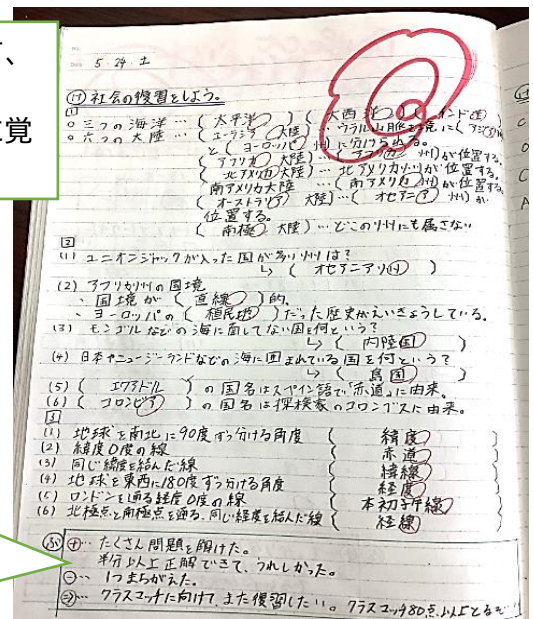 、
覚
No.
Date 5・24・土
け 社会の復習をしよう。
1
○三つの海洋…(太平洋)(大西洋)(インド洋)
○六つの大陸…(ユーラシア大陸)…ウラル山脈を境に(アジア州)
と(ヨーロッパ州)に分けられる。
(アフリカ大陸)…(アフリカ州)が位置する。
(北アメリカ大陸)…北アメリカ州が位置する。
南アメリカ大陸…(南アメリカ州)が位置する。
(オーストラリア大陸)…(オセアニア州)が
位置する。
(南極大陸)…どこの州にも属さない
2
(1) ユニオンジャックが入った国が多い州は?
↳(オセアニア州)
(2) アフリカ州の国境
・国境が(直線)的。
・ヨーロッパの(植民地)だった歴史がえいきょうしている。
(3) モンゴルなどの海に面してない国を何という?
↳(内陸国)
(4) 日本やニュージーランドなどの海に囲まれている国を何という?
↳(島国)
(5)(エクアドル)の国名はスペイン語で「赤道」に由来。
(6)(コロンビア)の国名は探検家のコロンブスに由来。
3
(1) 地球を南北に90度ずつ分ける角度(緯度)
(2) 緯度0度の線(赤道)
(3) 同じ緯度を結んだ線(緯線)
(4) 地球を東西に180度ずつ分ける角度(経度)
(5) ロンドンを通る経度0度の線(本初子午線)
(6) 北極点と南極点を通る、同じ経度を結んだ線(経線)
ふ ＋…たくさん問題を解けた。
半分以上正解できて、うれしかった。
－…1つまちがえた。
⇒…クラスマッチに向けて、また復習したい。クラスマッチ80点以上とるぞ